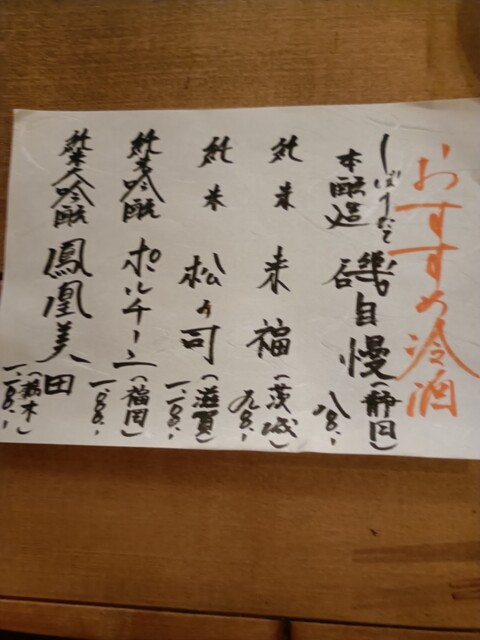 おすすめ冷酒
しぼりたて
本醸造 磯自慢(静岡) 八八〇.-
純米 来福(茨城) 九八〇.-
純米 松の司(滋賀) 一.一八〇.-
純米吟醸 (福岡) 一.〇八〇.-
純米大吟醸 鳳凰美田(栃木) 一.一八〇.-